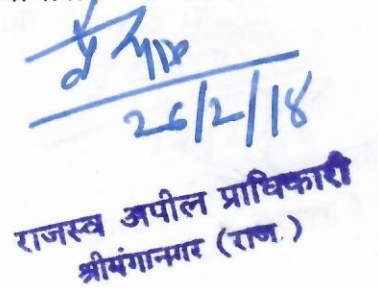 26/2/18
राजस्व अपील प्राधिकारी
श्रीगंगानगर (राज.)